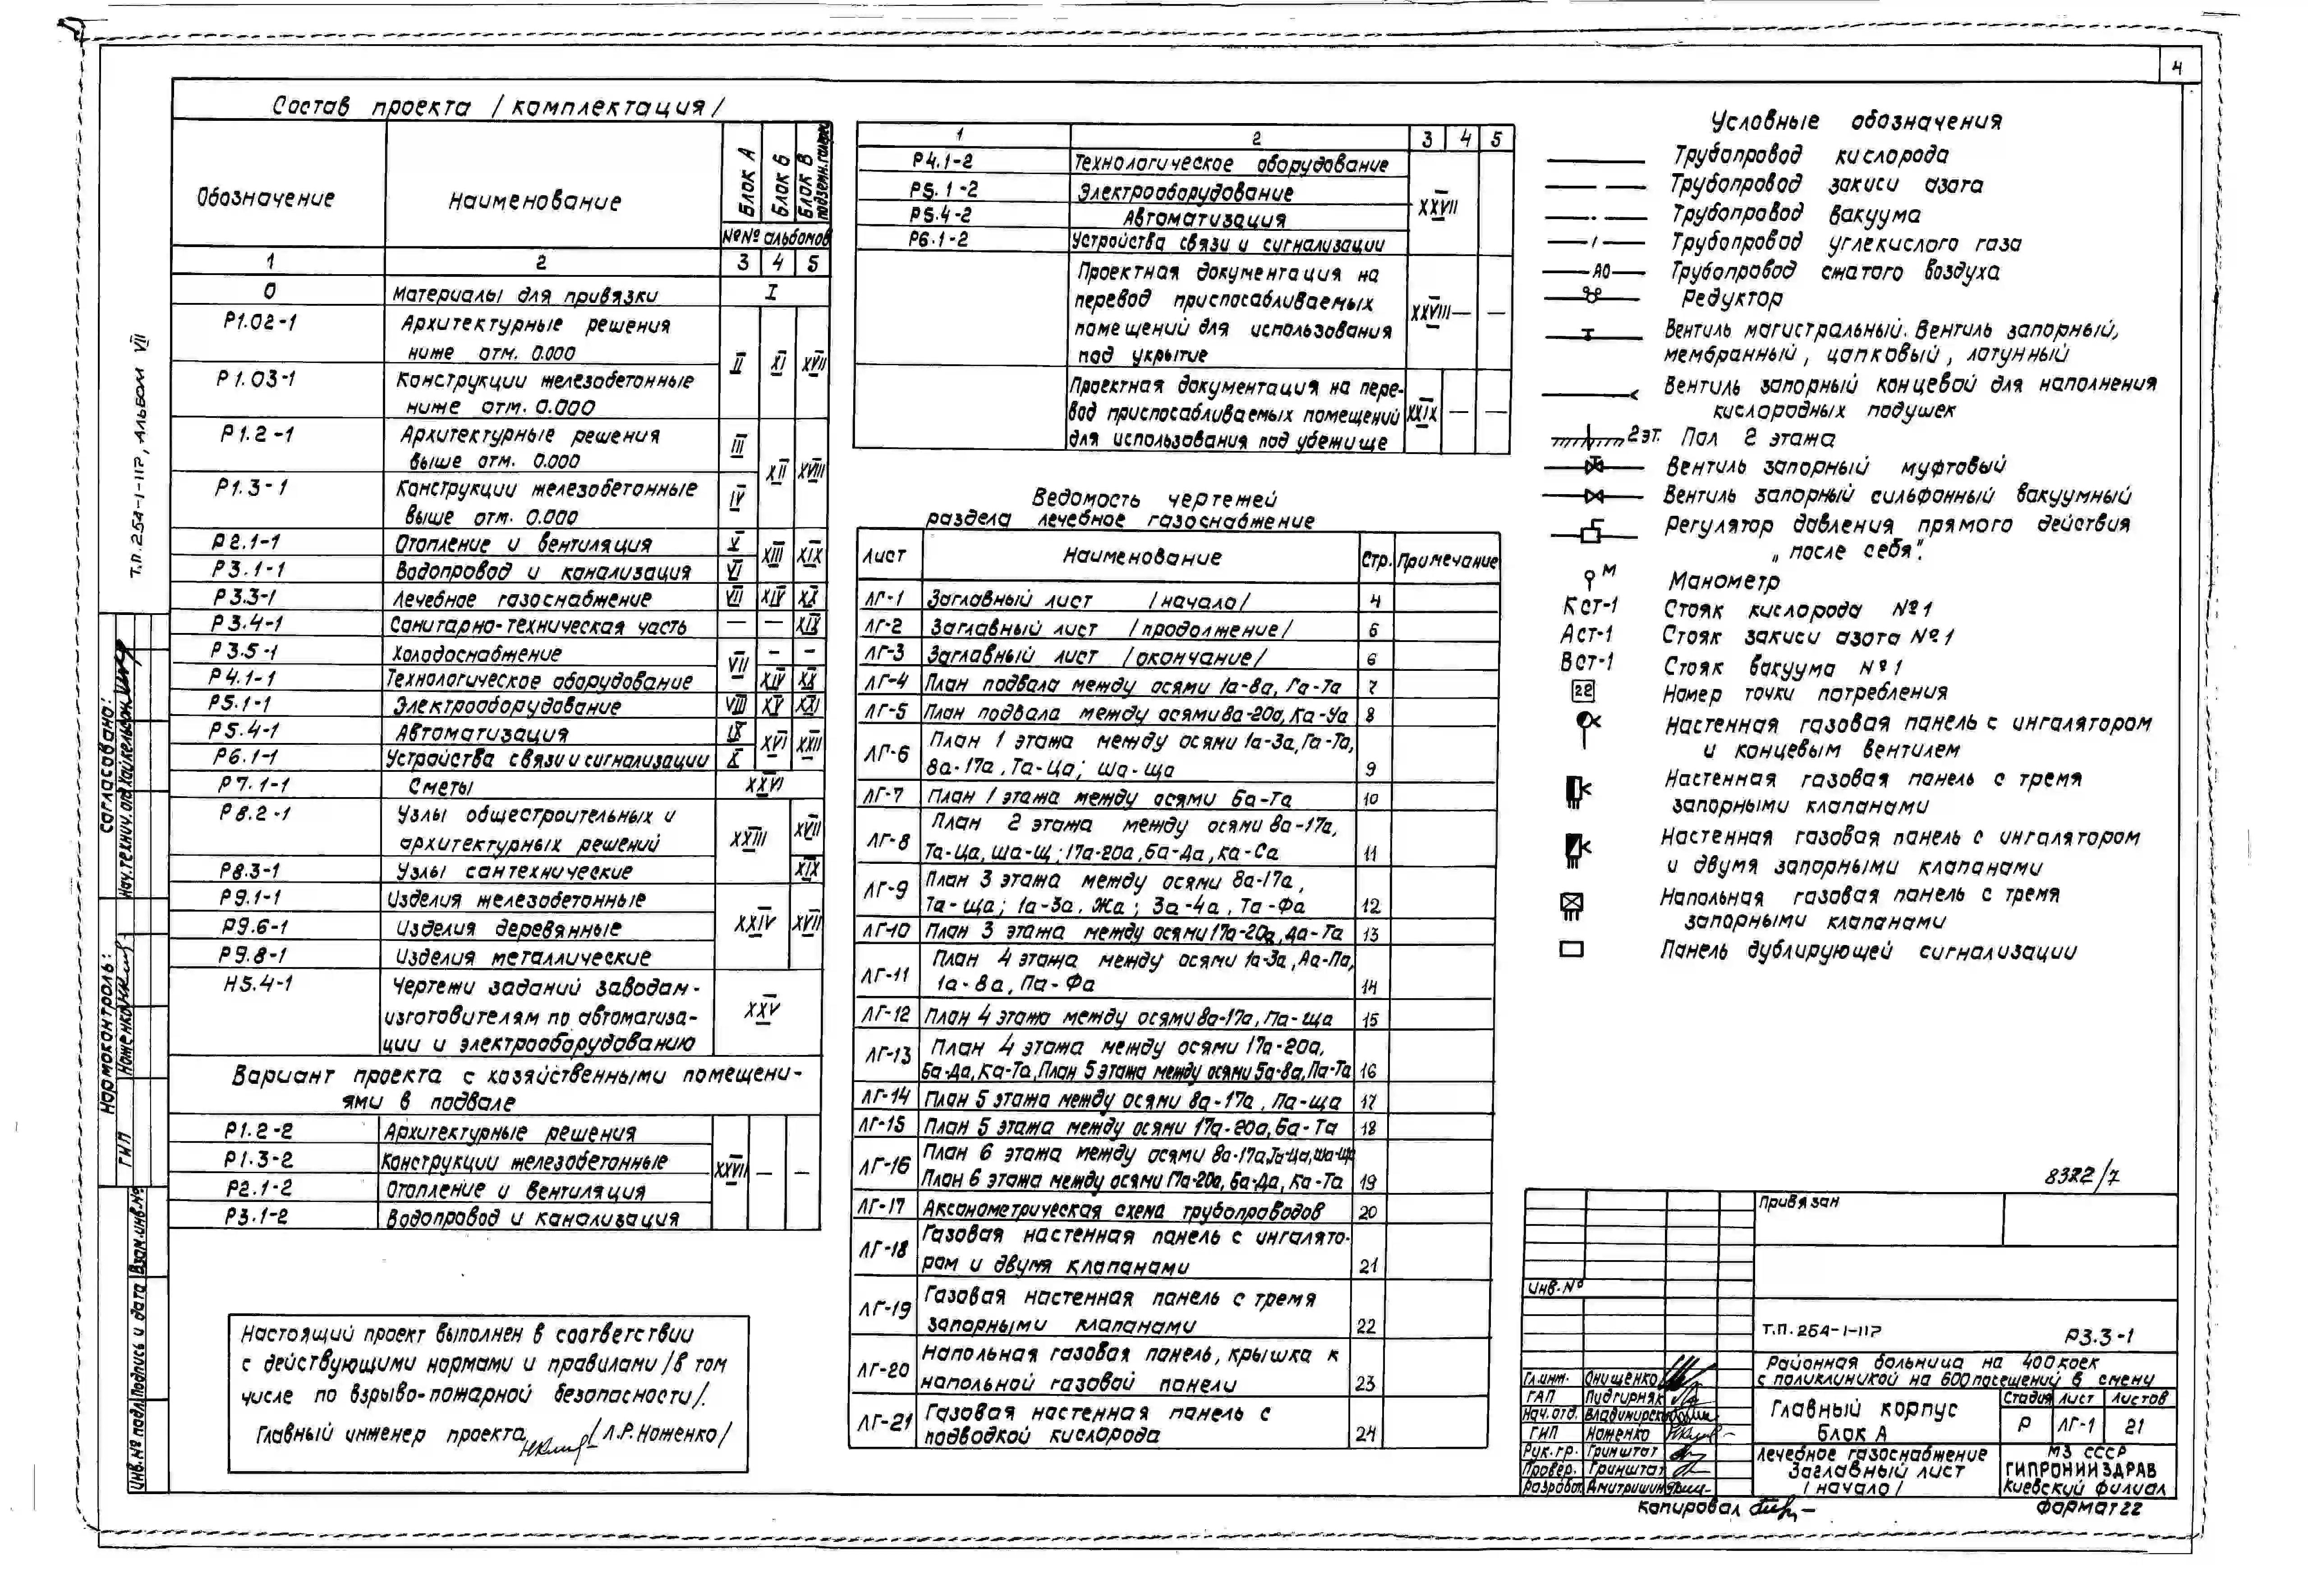 4
Состав проекта /комплектация/
Обозначение
Наименование
Блок А
Блок Б
Блок В
подземн. галерея
№№ альбомов
1 2 3 4 5
0 Материалы для привязки I
Р1.02-1 Архитектурные решения
ниже отм. 0.000
II XI XVII
Р1.03-1 Конструкции железобетонные
ниже отм. 0.000
Р1.2-1 Архитектурные решения III
выше отм. 0.000
XII XVIII
Р1.3-1 Конструкции железобетонные IV
выше отм. 0.000
Р2.1-1 Отопление и вентиляция V XIII XIX
Р3.1-1 Водопровод и канализация VI
Р3.3-1 Лечебное газоснабжение VII XIV XX
Р3.4-1 Санитарно-техническая часть — — XIX
Р3.5-1 Холодоснабжение VII - -
Р4.1-1 Технологическое оборудование XIV XX
Р5.1-1 Электрооборудование VIII XV XXI
Р5.4-1 Автоматизация IX XVI XXII
Р6.1-1 Устройства связи и сигнализации X - -
Р7.1-1 Сметы XXVI
Р8.2-1 Узлы общестроительных и
архитектурных решений
XXIII XVII
Р8.3-1 Узлы сантехнические XIX
Р9.1-1 Изделия железобетонные
Р9.6-1 Изделия деревянные XXIV XVII
Р9.8-1 Изделия металлические
Н5.4-1 Чертежи заданий заводам-
изготовителям по автоматиза-
ции и электрооборудованию
XXV
Вариант проекта с хозяйственными помещени-
ями в подвале
Р1.2-2 Архитектурные решения
Р1.3-2 Конструкции железобетонные XXVII — —
Р2.1-2 Отопление и вентиляция
Р3.1-2 Водопровод и канализация
Настоящий проект выполнен в соответствии
с действующими нормами и правилами /в том
числе по взрыво-пожарной безопасности/.
Главный инженер проекта /Л.Р. Ноженко/
1 2 3 4 5
Р4.1-2 Технологическое оборудование
Р5.1-2 Электрооборудование XXVII
Р5.4-2 Автоматизация
Р6.1-2 Устройства связи и сигнализации
Проектная документация на
перевод приспосабливаемых
помещений для использования
под укрытие
XXVIII — —
Проектная документация на пере-
вод приспосабливаемых помещений
для использования под убежище
XXIX — —
Ведомость чертежей
раздела лечебное газоснабжение
Лист Наименование Стр. Примечание
ЛГ-1 Заглавный лист /начало/ 4
ЛГ-2 Заглавный лист /продолжение/ 5
ЛГ-3 Заглавный лист /окончание/ 6
ЛГ-4 План подвала между осями 1а-8а, Га-Та 7
ЛГ-5 План подвала между осями 8а-20а, Ка-Уа 8
ЛГ-6 План 1 этажа между осями 1а-3а, Га-Та,
8а-17а, Та-Ца; ша-ща 9
ЛГ-7 План 1 этажа между осями Ба-Та 10
ЛГ-8 План 2 этажа между осями 8а-17а,
Та-Ца, ша-щ; 17а-20а, Ба-Да, Ка-Са 11
ЛГ-9 План 3 этажа между осями 8а-17а,
Та-ща; 1а-3а, Жа; 3а-4а, Та-Фа 12
ЛГ-10 План 3 этажа между осями 17а-20а, Да-Та 13
ЛГ-11 План 4 этажа между осями 1а-3а, Аа-Па,
1а-8а, Па-Фа 14
ЛГ-12 План 4 этажа между осями 8а-17а, Па-ща 15
ЛГ-13 План 4 этажа между осями 17а-20а,
Ба-Да, Ка-Та, План 5 этажа между осями 5а-8а, Па-Та 16
ЛГ-14 План 5 этажа между осями 8а-17а, Па-ща 17
ЛГ-15 План 5 этажа между осями 17а-20а, Ба-Та 18
ЛГ-16 План 6 этажа между осями 8а-17а, Та-Ца, ша-ща
План 6 этажа между осями 17а-20а, Ба-Да, Ка-Та 19
ЛГ-17 Аксонометрическая схема трубопроводов 20
ЛГ-18 Газовая настенная панель с ингалято-
ром и двумя клапанами 21
ЛГ-19 Газовая настенная панель с тремя
запорными клапанами 22
ЛГ-20 Напольная газовая панель, крышка к
напольной газовой панели 23
ЛГ-21 Газовая настенная панель с
подводкой кислорода 24
Условные обозначения
Трубопровод кислорода
Трубопровод закиси азота
Трубопровод вакуума
Трубопровод углекислого газа
АО Трубопровод сжатого воздуха
Редуктор
Вентиль магистральный. Вентиль запорный,
мембранный, цапковый, латунный
Вентиль запорный концевой для наполнения
кислородных подушек
2эт. Пол 2 этажа
Вентиль запорный муфтовый
Вентиль запорный сильфонный вакуумный
Регулятор давления прямого действия
„после себя".
М Манометр
Кст-1 Стояк кислорода №1
Аст-1 Стояк закиси азота №1
Вст-1 Стояк вакуума №1
22 Номер точки потребления
Настенная газовая панель с ингалятором
и концевым вентилем
Настенная газовая панель с тремя
запорными клапанами
Настенная газовая панель с ингалятором
и двумя запорными клапанами
Напольная газовая панель с тремя
запорными клапанами
Панель дублирующей сигнализации
8322/7
Привязан
Инв. №
Т.П. 254-1-11? Р3.3-1
Районная больница на 400 коек
с поликлиникой на 600 посещений в смену
Гл.инж. Онищенко
ГАП Пидгирняк
Нач.отд. Владимирск
ГИП Ноженко
Рук.гр. Гринштат
Провер. Гринштат
Разработ. Дмитришин
Главный корпус
Блок А
Стадия Лист Листов
Р ЛГ-1 21
Лечебное газоснабжение
Заглавный лист
/начало/
МЗ СССР
ГИПРОНИИЗДРАВ
Киевский филиал
Копировал
Формат 22
Т.П. 254-1-11?, Альбом VII
Согласовано:
Нач. технич. отд. Хайкельсон
Нормоконтроль:
Ноженко
ГИП
Взам. инв. №
Подпись и дата
Инв. № подл.